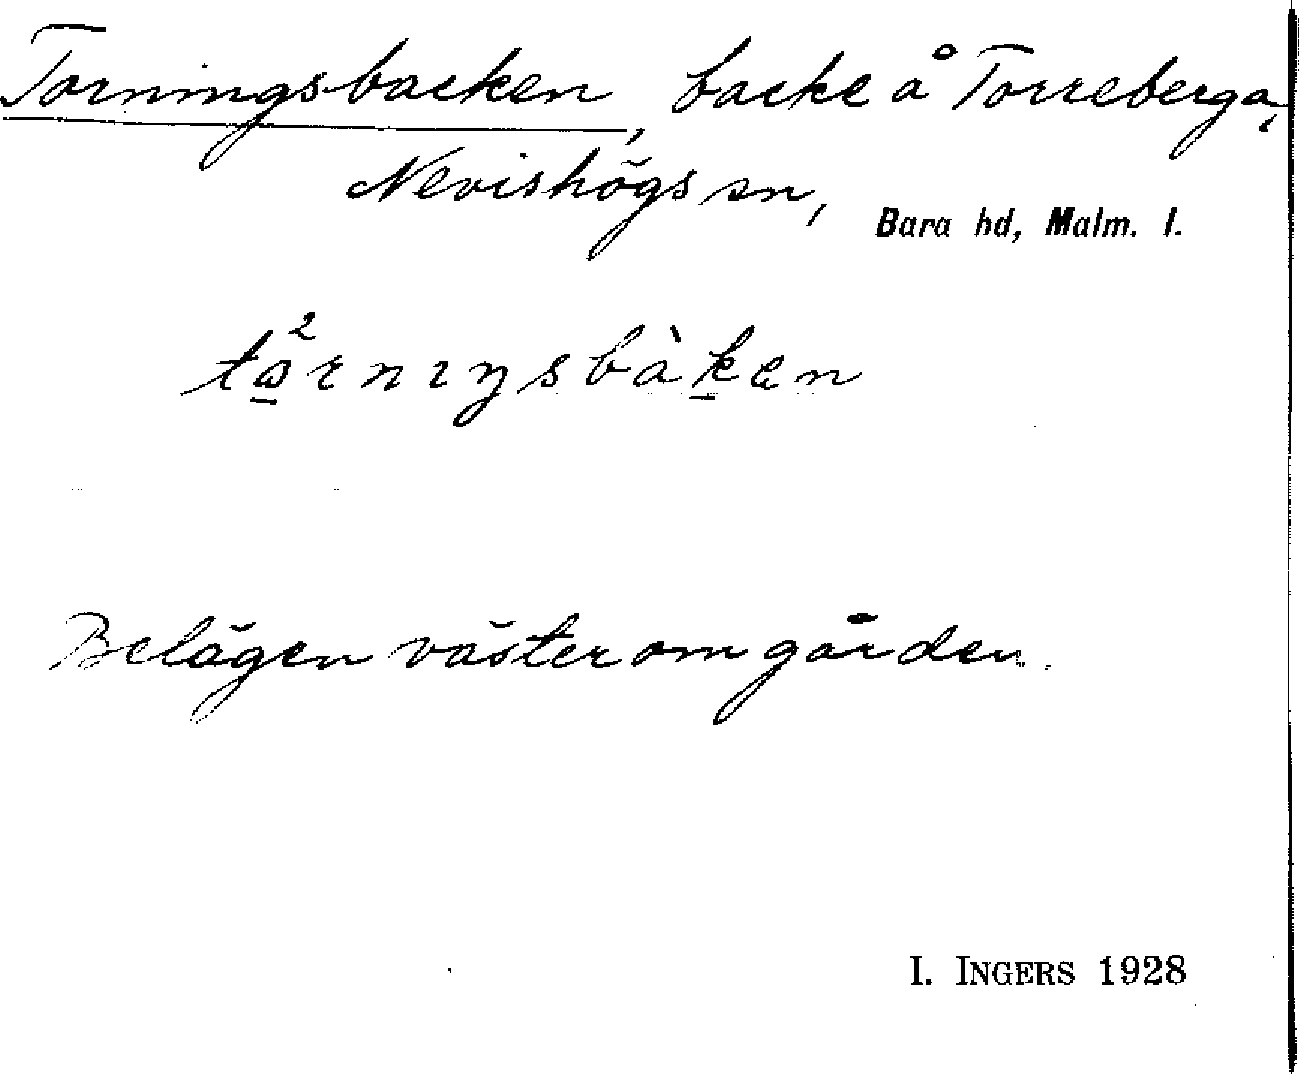 Torningsbacken, backe å Torreberga,
Nevishögs sn, Bara hd, Malm. l.
Belägen väster om gården.
I. INGERS 1928